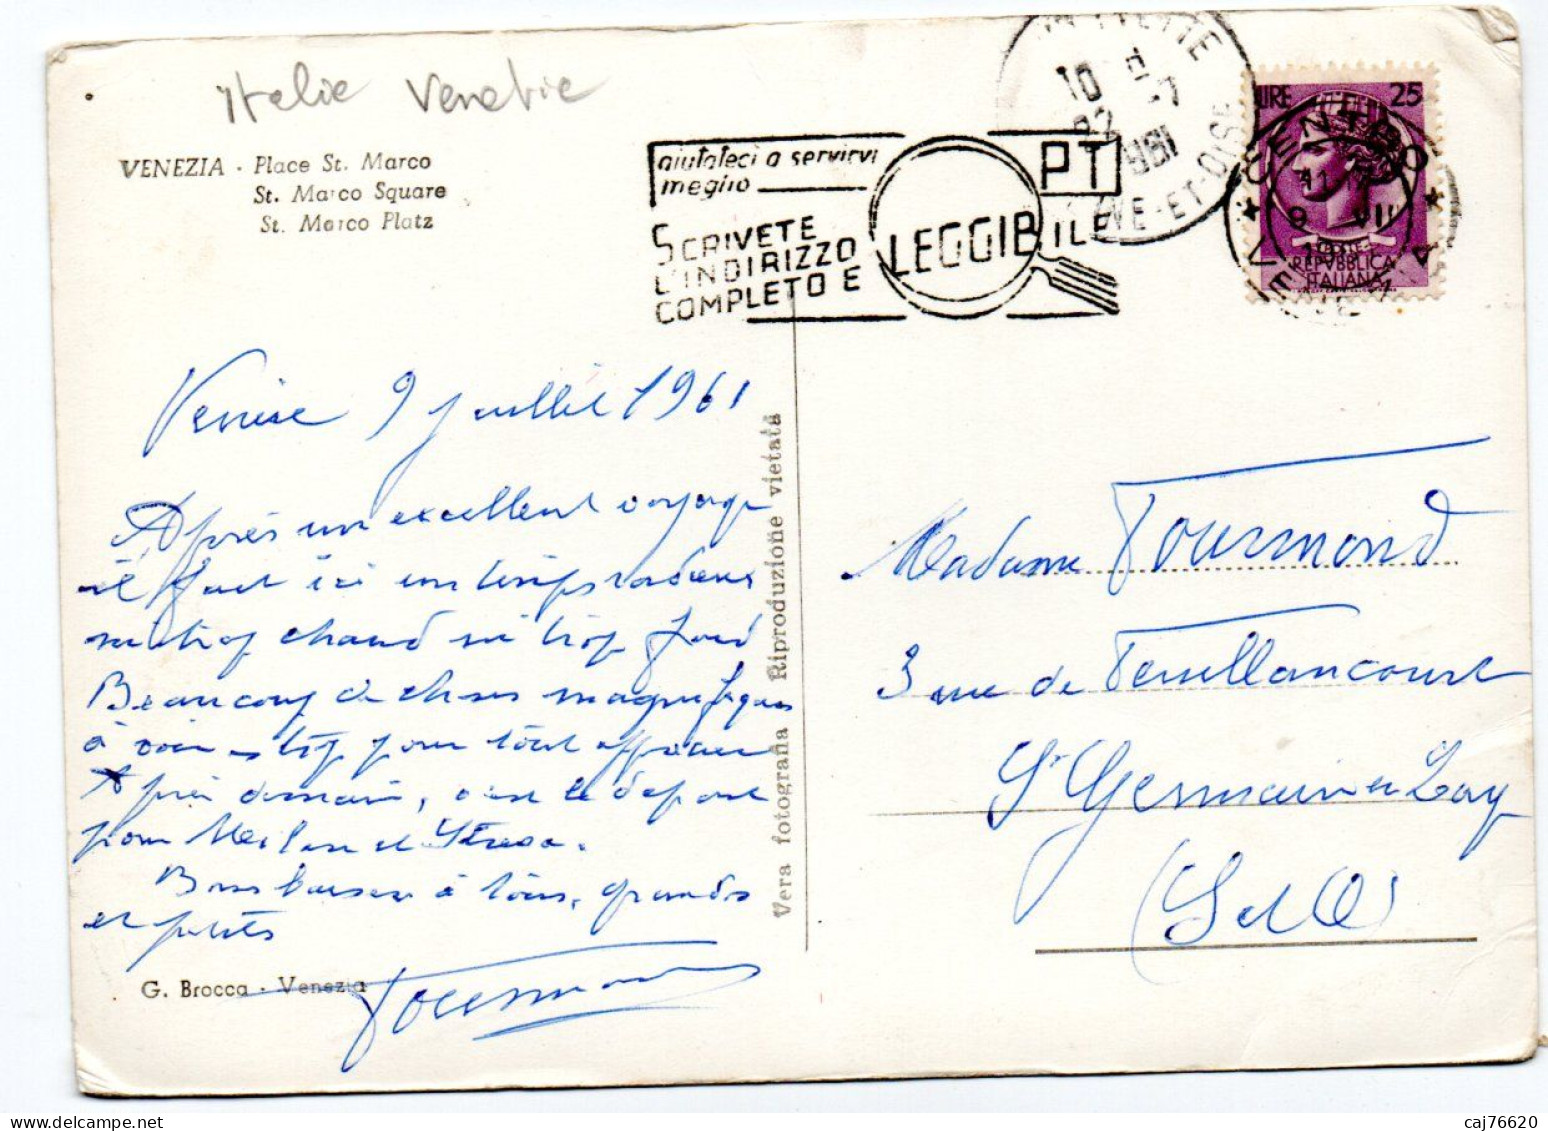 Italie Venetie
VENEZIA - Place St. Marco
St. Marco Square
St. Marco Platz
aiutateci a servirvi
meglio
PT
SCRIVETE
L'INDIRIZZO
COMPLETO E LEGGIBILE
10
22
1961
SEINE-ET-OISE
LIRE 25
REPVBBLICA
ITALIANA
CENTRO
VENEZIA
11
9 VII
Venise 9 juillet 1961
Après un excellent voyage
il fait ici un temps radieux
ni trop chaud ni trop froid
Beaucoup de choses magnifiques
à voir - trop pour tout apprécier
Après demain, c'est le départ
pour Milan et Stresa.
Bons baisers à tous, grands
et petits
Tourmond
G. Brocca - Venezia
Vera fotografia Riproduzione vietata
Madame Tourmond
3 rue de Feuillancourt
St Germain en Lay
(S et O)
caj76620